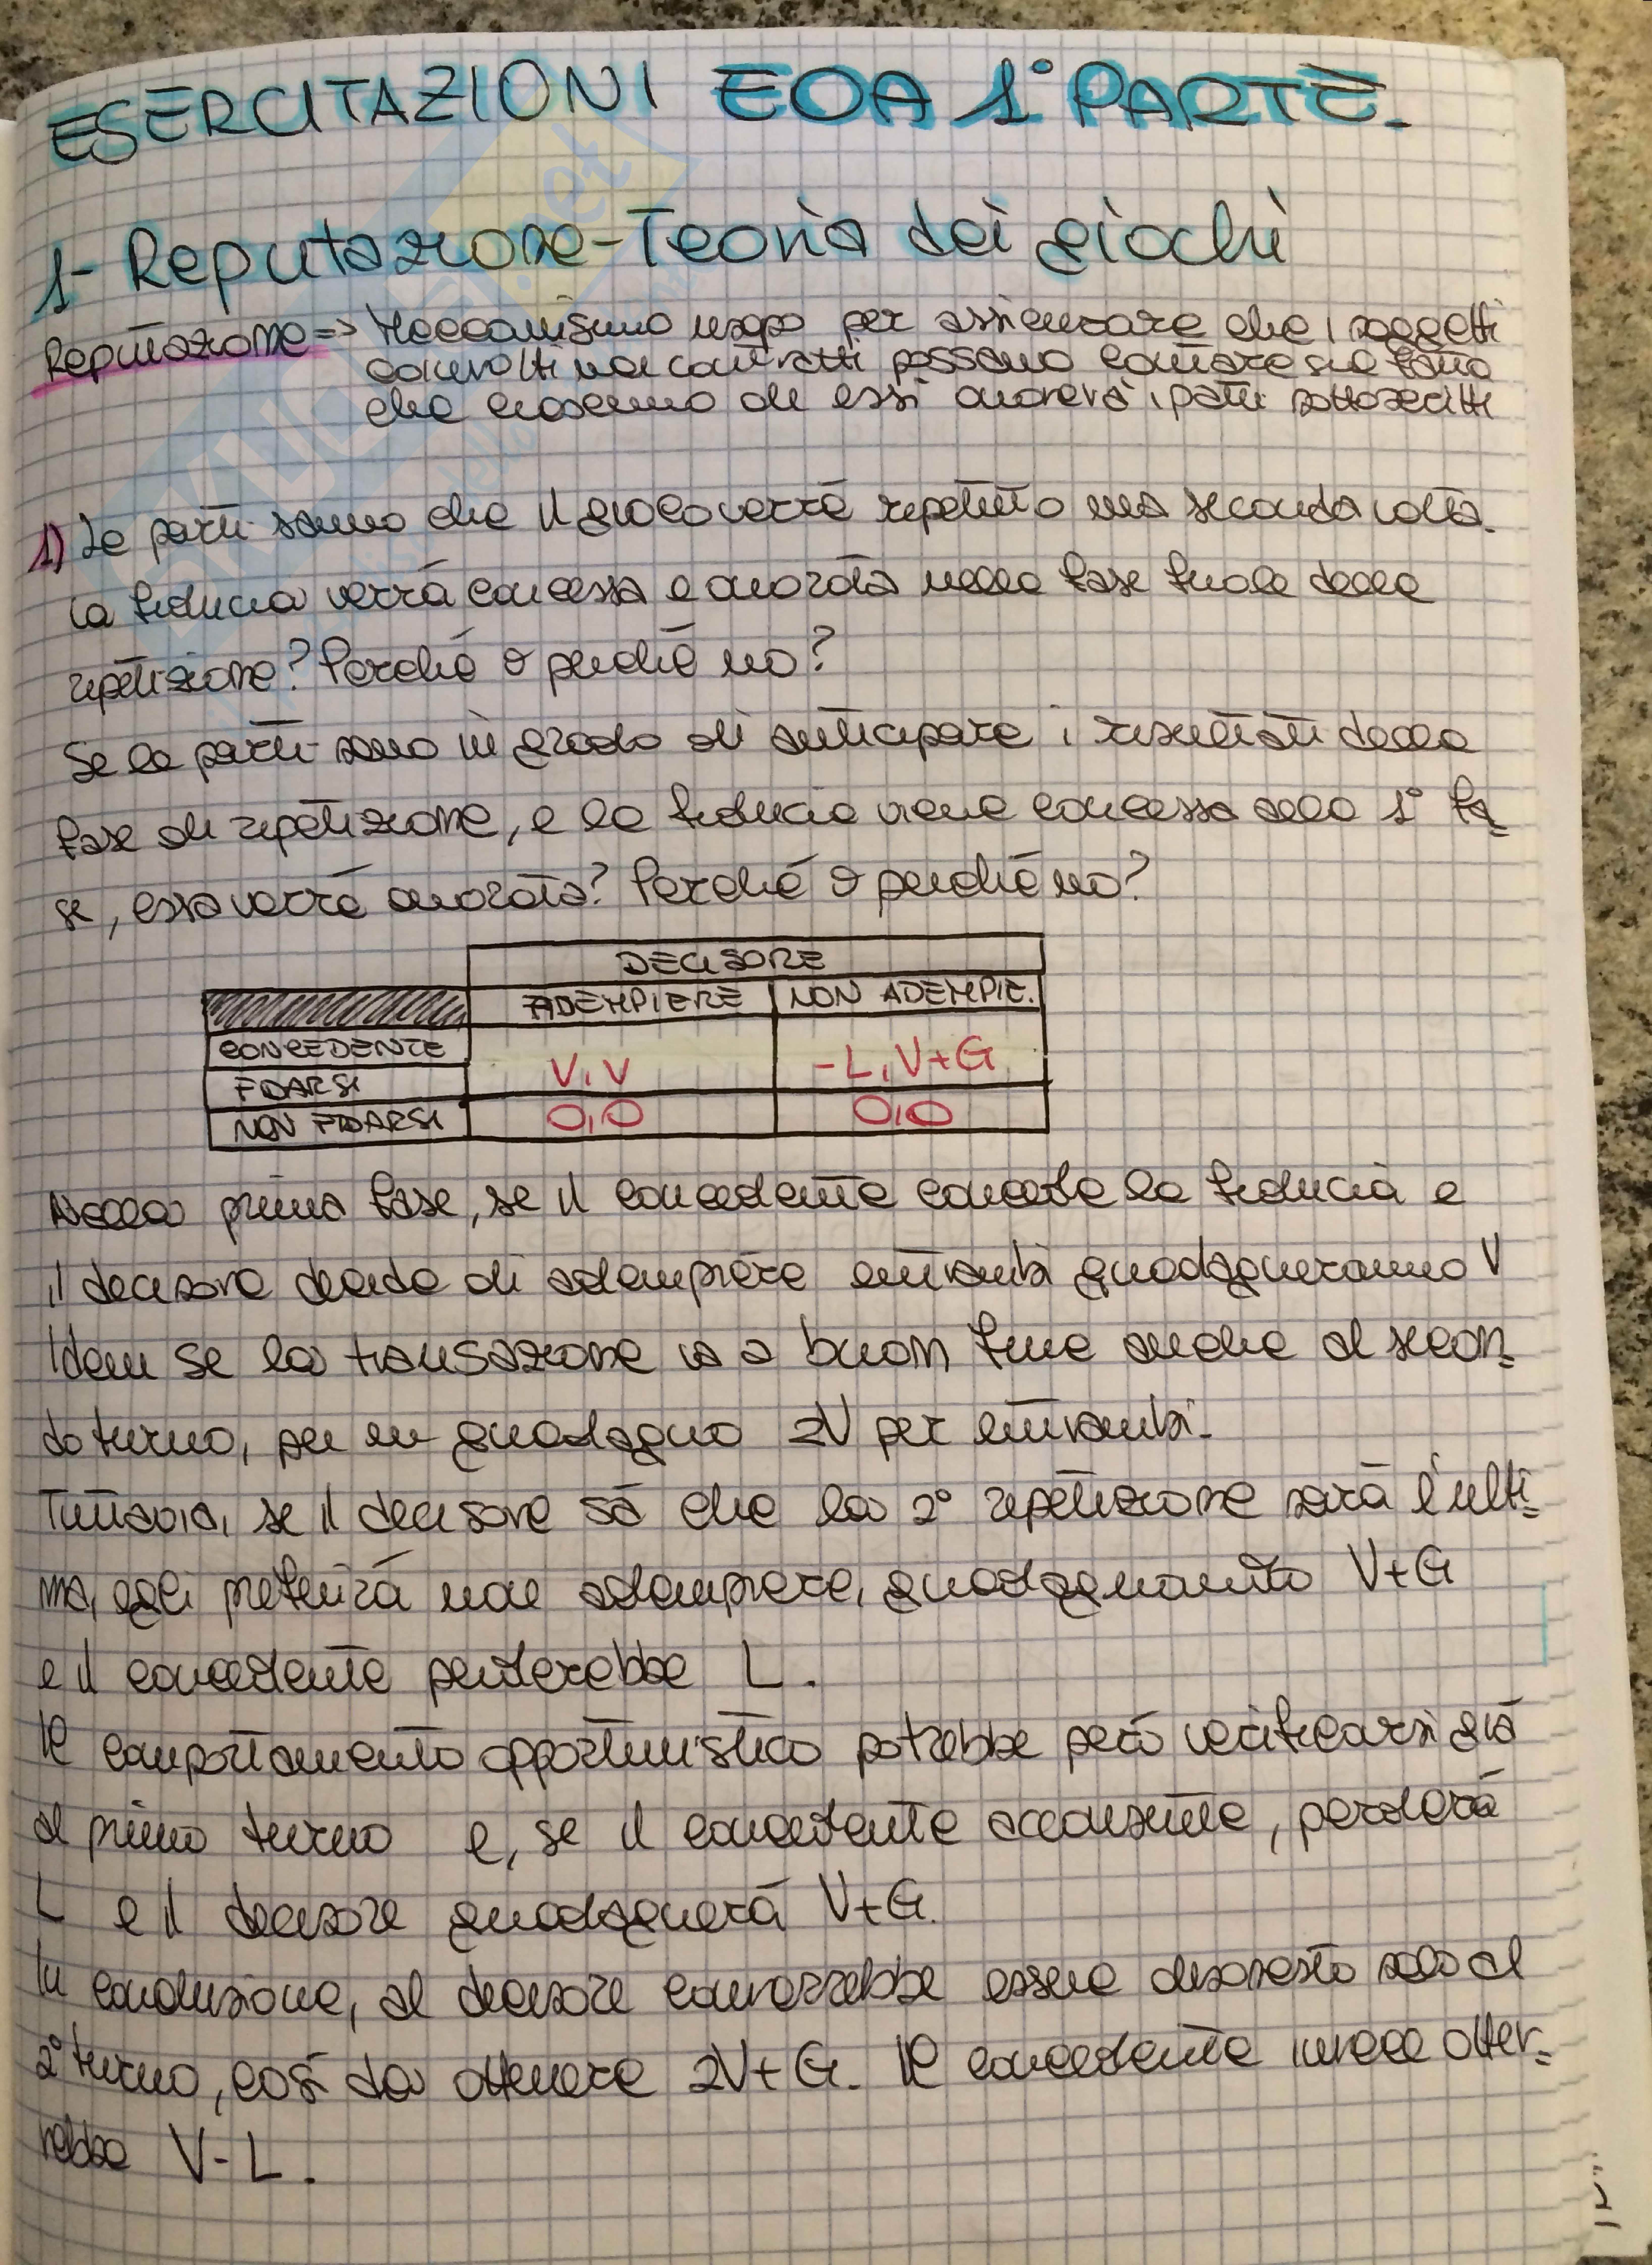 ESERCITAZIONI EOA 1° PARTE.
1- Reputazione - Teoria dei giochi
Reputazione => Meccanismo usato per assicurare che i soggetti
coinvolti nei contratti possano contare sul fatto
che ciascuno di essi onorerà i patti sottoscritti
1) Le parti sanno che il gioco verrà ripetuto una seconda volta.
La fiducia verrà concessa e onorata nella fase finale della
ripetizione? Perché o perché no?
Se le parti sono in grado di anticipare i risultati della
fase di ripetizione, e la fiducia viene concessa alla 1° fa=
se, essa verrà onorata? Perché o perché no?
DECISORE
ADEMPIERE NON ADEMPIE.
CONCEDENTE
FIDARSI V,V -L,V+G
NON FIDARSI 0,0 0,0
Nella prima fase, se il concedente concede la fiducia e
il decisore decide di adempiere entrambi guadagneranno V
Idem se la transazione va a buon fine anche al secon=
do turno, per un guadagno 2V per entrambi.
Tuttavia, se il decisore sà che la 2° ripetizione sarà l'ulti=
ma, egli preferirà non adempiere, guadagnando V+G
e il concedente perderebbe L.
Il comportamento opportunistico potrebbe però verificarsi già
al primo turno e, se il concedente acconsente, perderà
L e il decisore guadagnerà V+G.
In conclusione, al decisore converrebbe essere disonesto solo al
2° turno, così da ottenere 2V+G. Il concedente invece otter=
rebbe V-L.
SKUOLA.net